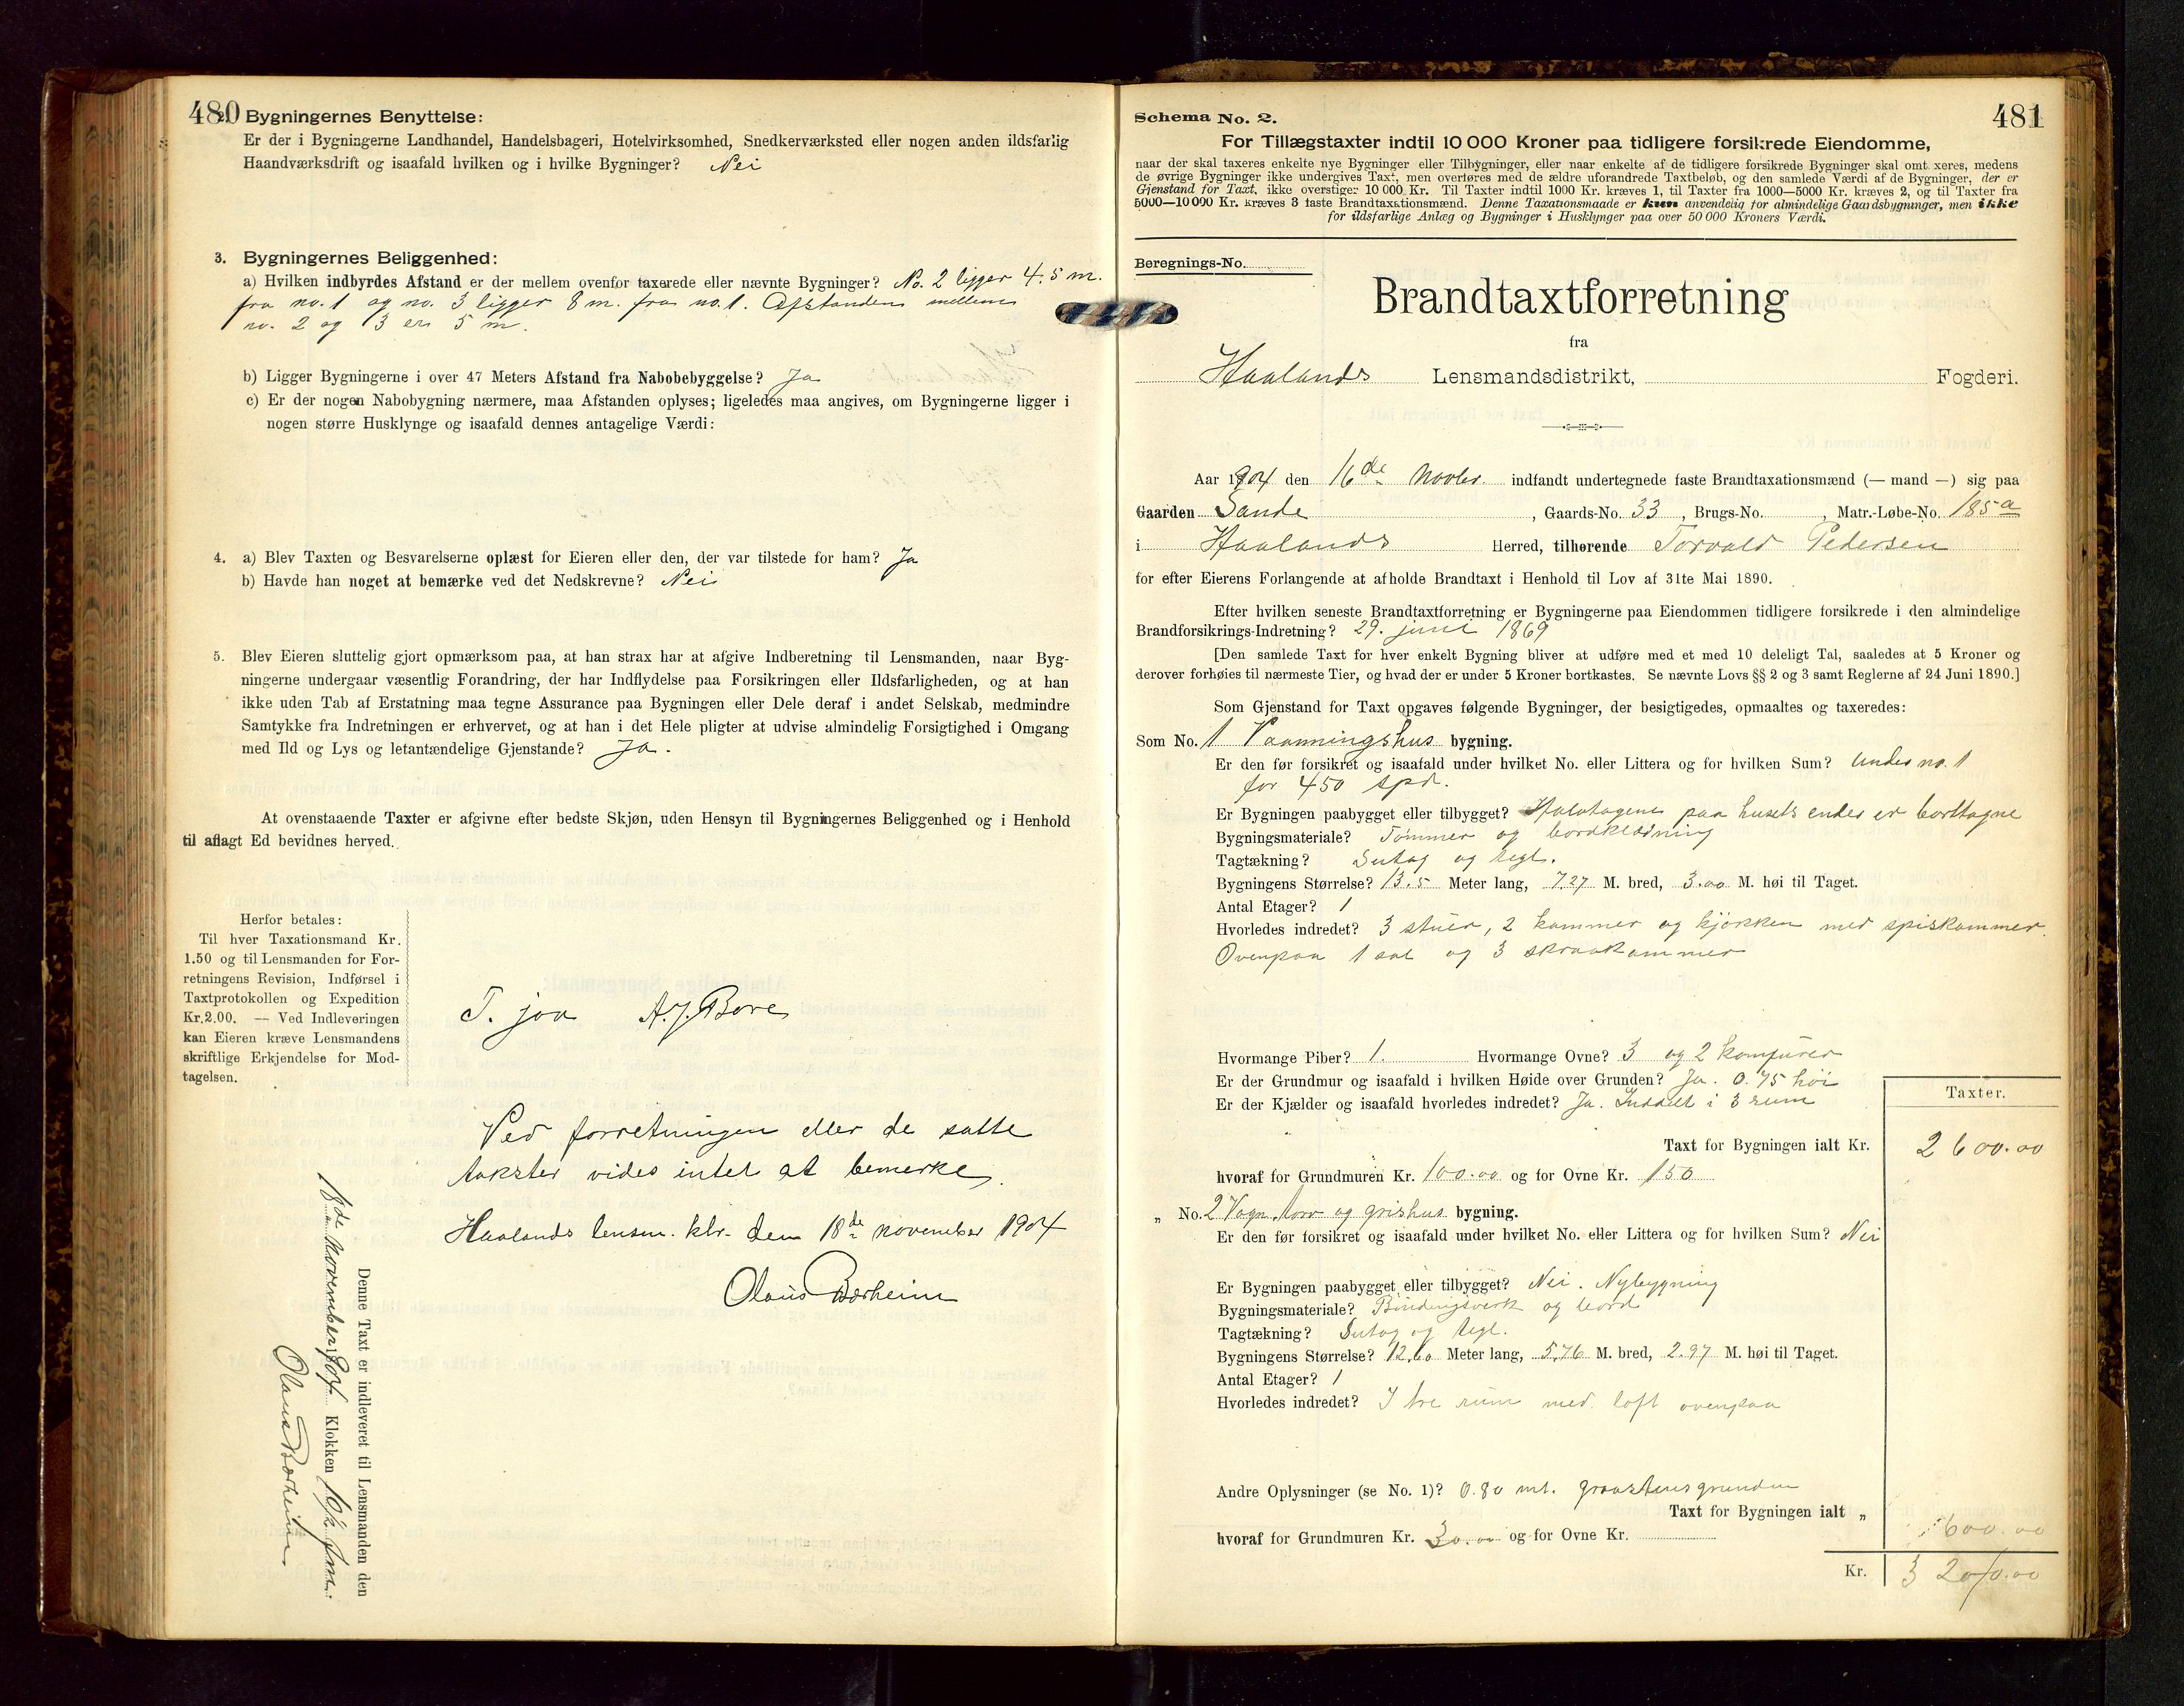 480
2. Bygningernes Benyttelse:
Er der i Bygningerne Landhandel, Handelsbageri, Hotelvirksomhed, Snedkerværksted eller nogen anden ildsfarlig
Haandværksdrift og isaafald hvilken og i hvilke Bygninger? Nei
3. Bygningernes Beliggenhed:
a) Hvilken indbyrdes Afstand er der mellem ovenfor taxerede eller nævnte Bygninger? No. 2 ligger 4.5 m.
fra no. 1 og no. 3 ligger 8 m. fra no. 1. Afstanden mellem
no. 2 og 3 er 5 m.
b) Ligger Bygningerne i over 47 Meters Afstand fra Nabobebyggelse? Ja
c) Er der nogen Nabobygning nærmere, maa Afstanden oplyses; ligeledes maa angives, om Bygningerne ligger i
nogen større Husklynge og isaafald dennes antagelige Værdi:
4. a) Blev Taxten og Besvarelserne oplæst for Eieren eller den, der var tilstede for ham? Ja
b) Havde han noget at bemærke ved det Nedskrevne? Nei
5. Blev Eieren sluttelig gjort opmærksom paa, at han strax har at afgive Indberetning til Lensmanden, naar Byg-
ningerne undergaar væsentlig Forandring, der har Indflydelse paa Forsikringen eller Ildsfarligheden, og at han
ikke uden Tab af Erstatning maa tegne Assurance paa Bygningen eller Dele deraf i andet Selskab, medmindre
Samtykke fra Indretningen er erhvervet, og at han i det Hele pligter at udvise almindelig Forsigtighed i Omgang
med Ild og Lys og letantændelige Gjenstande? Ja.
At ovenstaaende Taxter er afgivne efter bedste Skjøn, uden Hensyn til Bygningernes Beliggenhed og i Henhold
til aflagt Ed bevidnes herved.
Herfor betales:
Til hver Taxationsmand Kr.
1.50 og til Lensmanden for For-
retningens Revision, Indførsel i
Taxtprotokollen og Expedition
Kr. 2.00. — Ved Indleveringen
kan Eieren kræve Lensmandens
skriftlige Erkjendelse for Mod-
tagelsen.
T. Joa A. J. Bore
Ved forretningen eller de satte
takster vides intet at bemerke.
Haalands lensm. ktr. den 18de november 1904
Olaus Børheim
Denne Taxt er indleveret til Lensmanden den
18de november 1904 Klokken 10½ fm.
Olaus Børheim
481
Schema No. 2.
For Tillægstaxter indtil 10 000 Kroner paa tidligere forsikrede Eiendomme,
naar der skal taxeres enkelte nye Bygninger eller Tilbygninger, eller naar enkelte af de tidligere forsikrede Bygninger skal omtaxeres, medens
de øvrige Bygninger ikke undergives Taxt, men overføres med de ældre uforandrede Taxtbeløb, og den samlede Værdi af de Bygninger, der er
Gjenstand for Taxt, ikke overstiger 10 000 Kr. Til Taxter indtil 1000 Kr. kræves 1, til Taxter fra 1000—5000 Kr. kræves 2, og til Taxter fra
5000—10 000 Kr. kræves 3 faste Brandtaxationsmænd. Denne Taxationsmaade er kun anvendelig for almindelige Gaardsbygninger, men ikke
for ildsfarlige Anlæg og Bygninger i Husklynger paa over 50 000 Kroners Værdi.
Beregnings-No.
Brandtaxtforretning
fra
Haalands Lensmandsdistrikt, Fogderi.
Aar 1904 den 16de novbr. indfandt undertegnede faste Brandtaxationsmænd (— mand —) sig paa
Gaarden Sande, Gaards-No. 33, Brugs-No. , Matr.-Løbe-No. 185a
i Haalands Herred, tilhørende Torvald Pedersen
for efter Eierens Forlangende at afholde Brandtaxt i Henhold til Lov af 31te Mai 1890.
Efter hvilken seneste Brandtaxtforretning er Bygningerne paa Eiendommen tidligere forsikrede i den almindelige
Brandforsikrings-Indretning? 29. juni 1869
[Den samlede Taxt for hver enkelt Bygning bliver at udføre med et med 10 deleligt Tal, saaledes at 5 Kroner og
derover forhøies til nærmeste Tier, og hvad der er under 5 Kroner bortkastes. Se nævnte Lovs §§ 2 og 3 samt Reglerne af 24 Juni 1890.]
Som Gjenstand for Taxt opgaves følgende Bygninger, der besigtigedes, opmaaltes og taxeredes:
Som No. 1 Vaanningshus bygning.
Er den før forsikret og isaafald under hvilket No. eller Littera og for hvilken Sum? Under no. 1
for 450 spd.
Er Bygningen paabygget eller tilbygget? Halvtagene paa husets ender er borttagne
Bygningsmateriale? Tømmer og bordklædning
Tagtækning? Sutag og tegl.
Bygningens Størrelse? 13.5 Meter lang, 7.27 M. bred, 3.00 M. høi til Taget.
Antal Etager? 1
Hvorledes indredet? 3 stuer, 2 kammer og kjøkken med spiskammer.
Ovenpaa 1 sal og 3 skraakammer
Hvormange Piber? 1. Hvormange Ovne? 3 og 2 komfurer
Er der Grundmur og isaafald i hvilken Høide over Grunden? Ja. 0.75 høi
Er der Kjælder og isaafald hvorledes indredet? Ja. Inddelt i 3 rum
Taxter.
Taxt for Bygningen ialt Kr. 2600.00
hvoraf for Grundmuren Kr. 100.00 og for Ovne Kr. 150
„ No. 2 Vogn, torv og grishus bygning.
Er den før forsikret og isaafald under hvilket No. eller Littera og for hvilken Sum? Nei
Er Bygningen paabygget eller tilbygget? Nei. Nybygning
Bygningsmateriale? Bindingsverk og bord
Tagtækning? Sutag og tegl.
Bygningens Størrelse? 12.60 Meter lang, 5.76 M. bred, 2.97 M. høi til Taget.
Antal Etager? 1
Hvorledes indredet? I tre rum med loft ovenpaa
Andre Oplysninger (se No. 1)? 0.80 mt. graastensgrunden
Taxt for Bygningen ialt „ 600.00
hvoraf for Grundmuren Kr. 30.00 og for Ovne Kr.
Kr. 3200.00